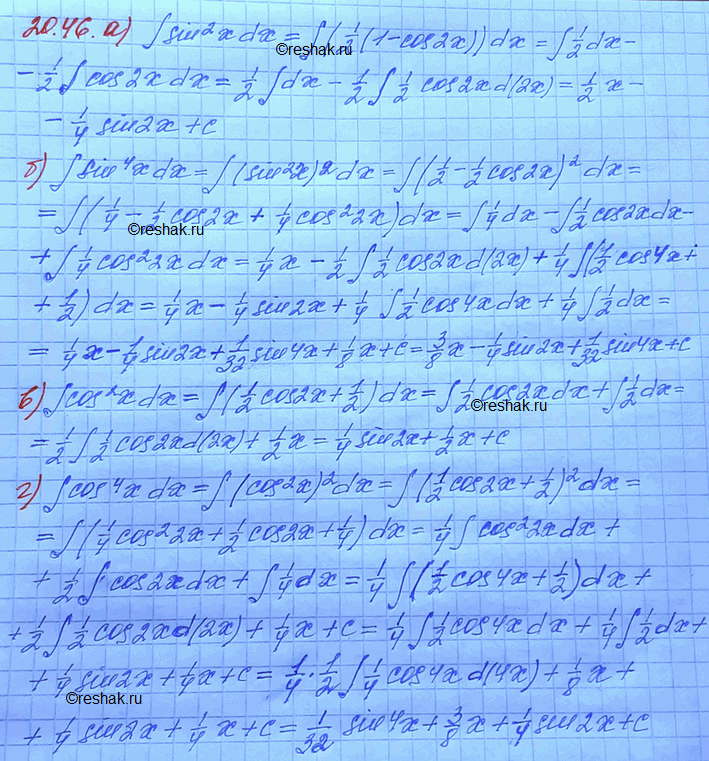 20.46. а) ∫sin²x dx = ∫(½(1-cos2x)) dx = ∫½dx -
- ½∫cos2x dx = ½∫dx - ½∫½ cos2x d(2x) = ½x -
- ¼ sin2x + c
б) ∫sin⁴x dx = ∫(sin²x)² dx = ∫(½ - ½cos2x)² dx =
= ∫(¼ - ½cos2x + ¼cos²2x) dx = ∫¼dx - ∫½cos2x dx -
reshak.ru
+ ∫¼cos²2x dx = ¼x - ½∫½cos2x d(2x) + ¼∫(½cos4x +
+ ½) dx = ¼x - ¼sin2x + ¼∫½cos4x dx + ¼∫½dx =
= ¼x - ¼sin2x + 1/32 sin4x + ⅛x + c = ⅜x - ¼sin2x + 1/32 sin4x + c
в) ∫cos²x dx = ∫(½cos2x + ½) dx = ∫½cos2x dx + ∫½dx =
reshak.ru
= ½∫½cos2x d(2x) + ½x = ¼sin2x + ½x + c
г) ∫cos⁴x dx = ∫(cos²x)² dx = ∫(½cos2x + ½)² dx =
= ∫(¼cos²2x + ½cos2x + ¼) dx = ¼∫cos²2x dx +
+ ½∫cos2x dx + ∫¼dx = ¼∫(½cos4x + ½) dx +
+ ½∫½cos2x d(2x) + ¼x + c = ¼∫½cos4x dx + ¼∫½dx +
+ ¼sin2x + ¼x + c = ¼·½∫¼cos4x d(4x) + ⅛x +
reshak.ru
+ ¼sin2x + ¼x + c = 1/32 sin4x + ⅜x + ¼sin2x + c